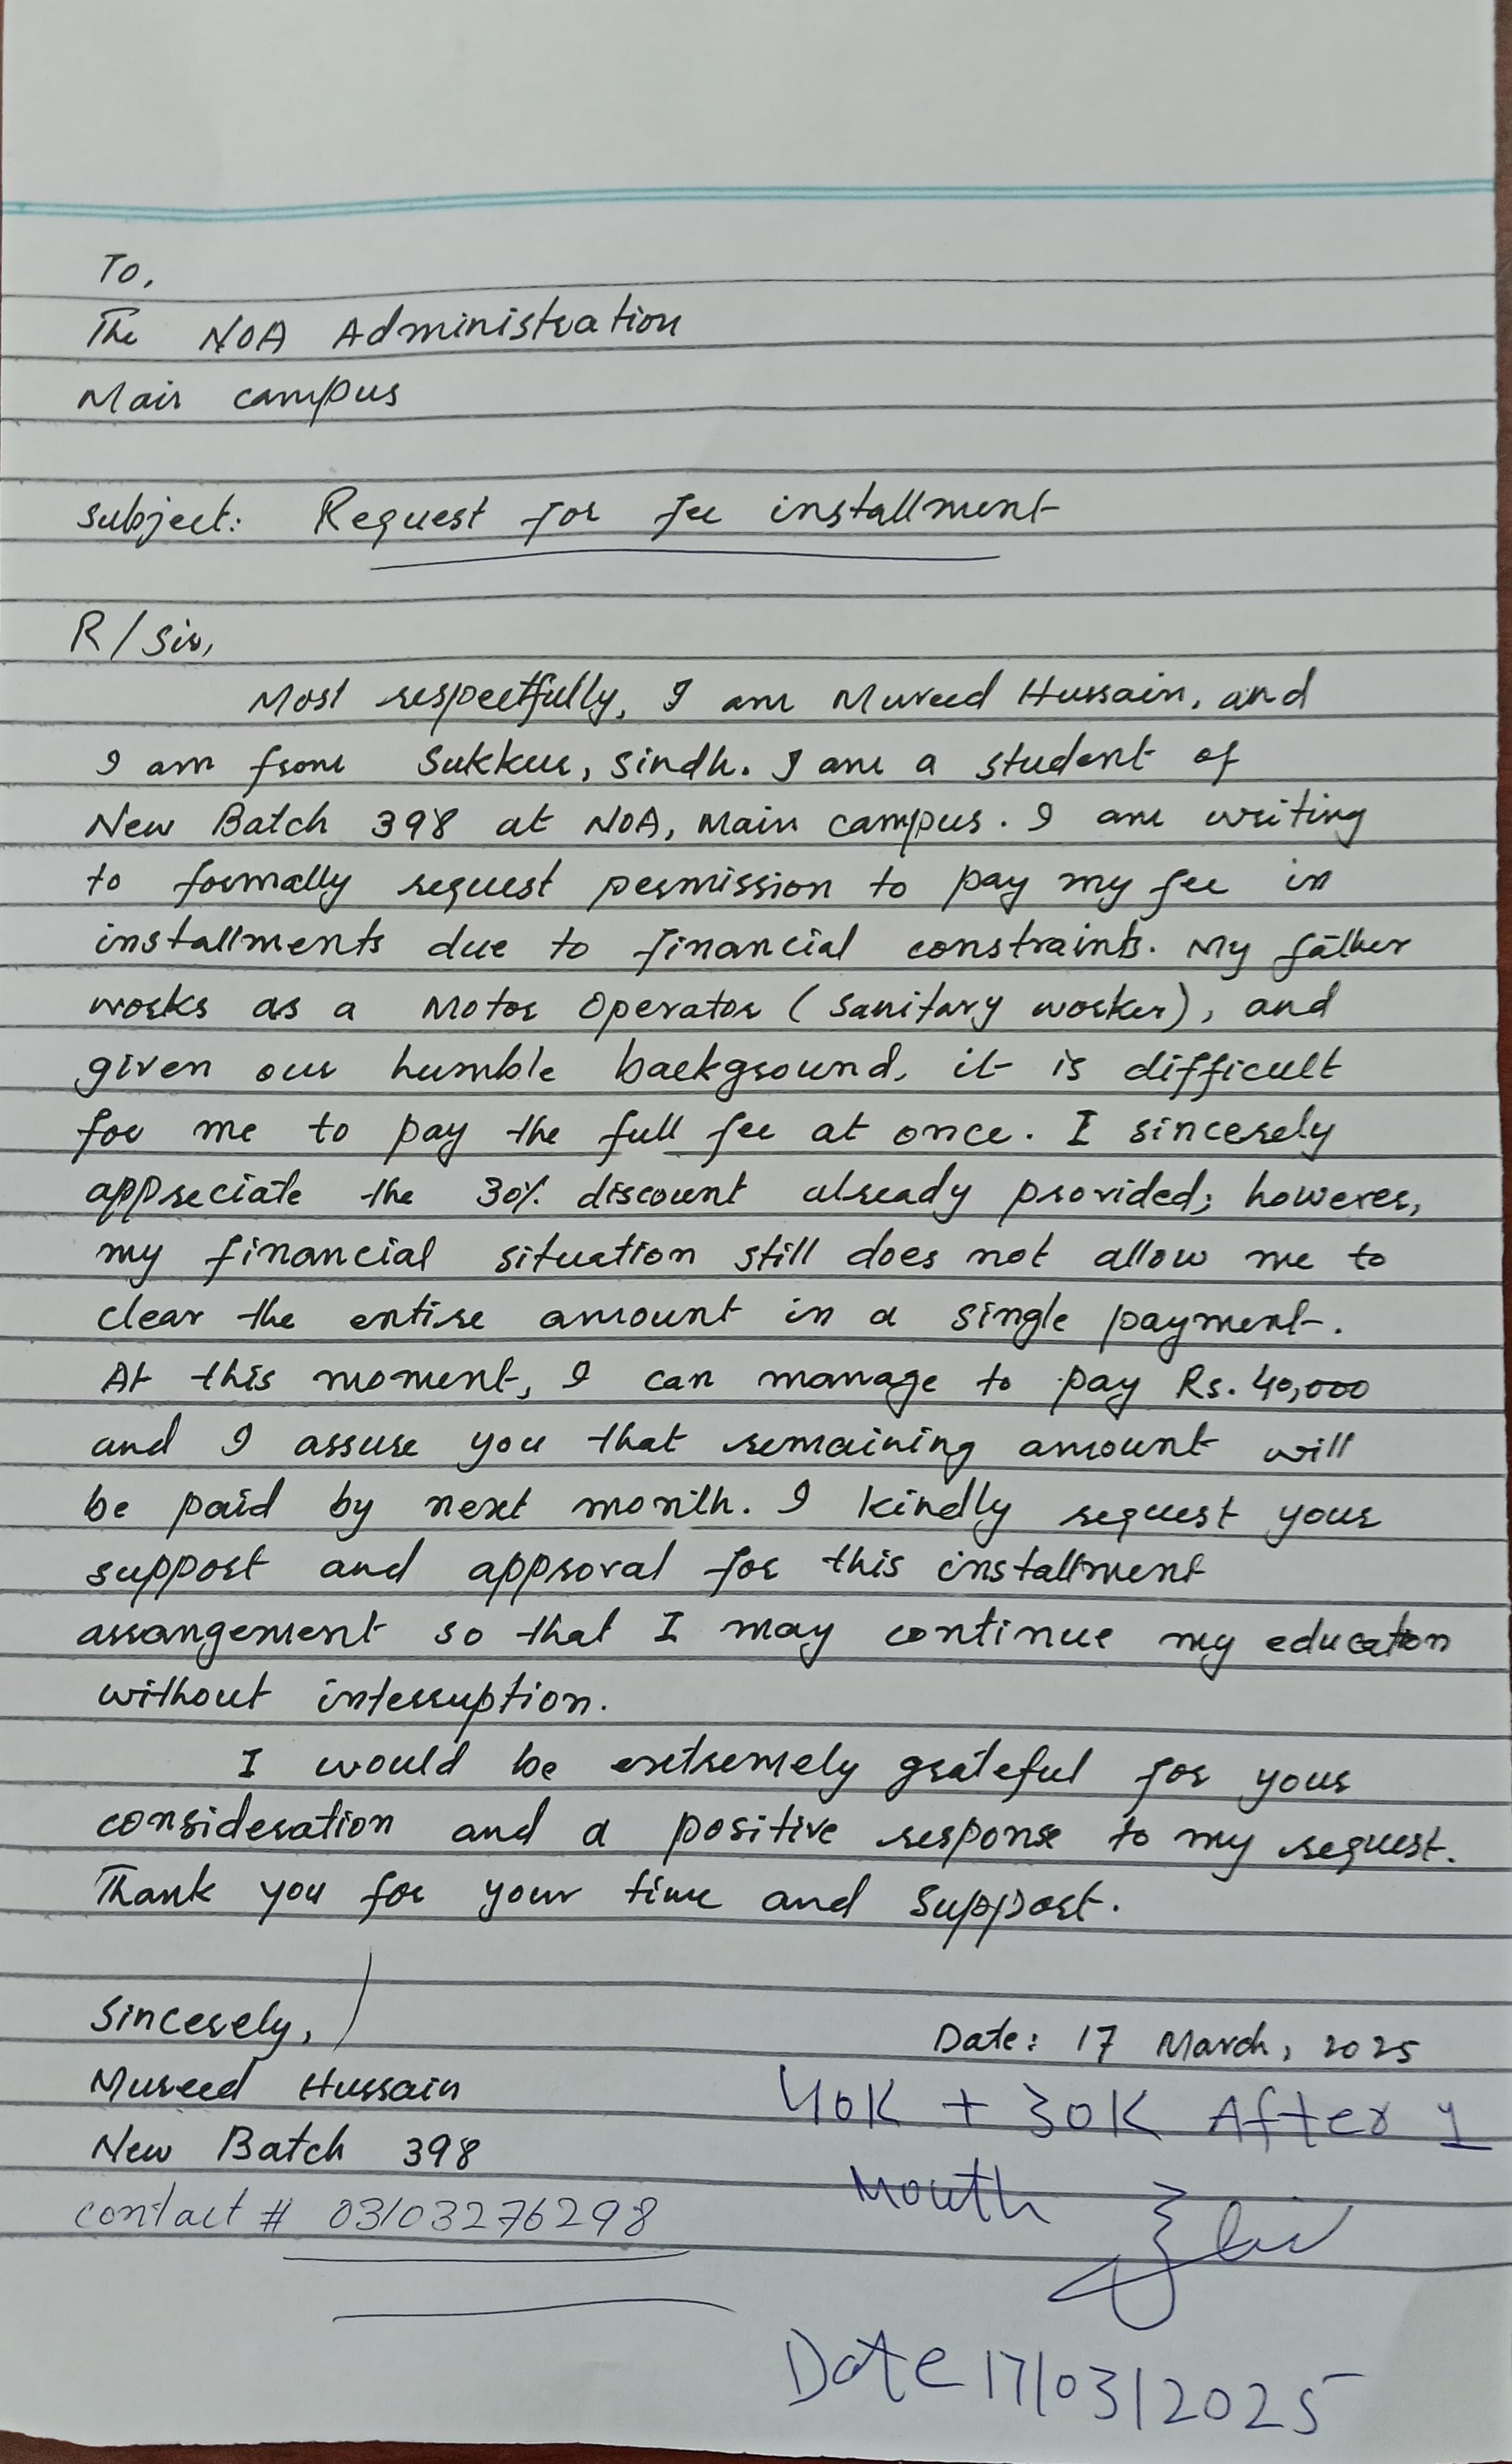 To,
The NOA Administration
Main campus
Subject: Request for fee installment
R/Sir,
Most respectfully, I am Mureed Hussain, and
I am from Sukkur, Sindh. I am a student of
New Batch 398 at NOA, Main campus. I am writing
to formally request permission to pay my fee in
installments due to financial constraints. My father
works as a Motor Operator (Sanitary worker), and
given our humble background, it is difficult
for me to pay the full fee at once. I sincerely
appreciate the 30% discount already provided; however,
my financial situation still does not allow me to
clear the entire amount in a single payment.
At this moment, I can manage to pay Rs. 40,000
and I assure you that remaining amount will
be paid by next month. I kindly request your
support and approval for this installment
arrangement so that I may continue my education
without interruption.
I would be extremely grateful for your
consideration and a positive response to my request.
Thank you for your time and support.
Sincerely,
Mureed Hussain
New Batch 398
contact # 03103276298
Date: 17 March, 2025
40K + 30K After 1
Month
Date 17/03/2025